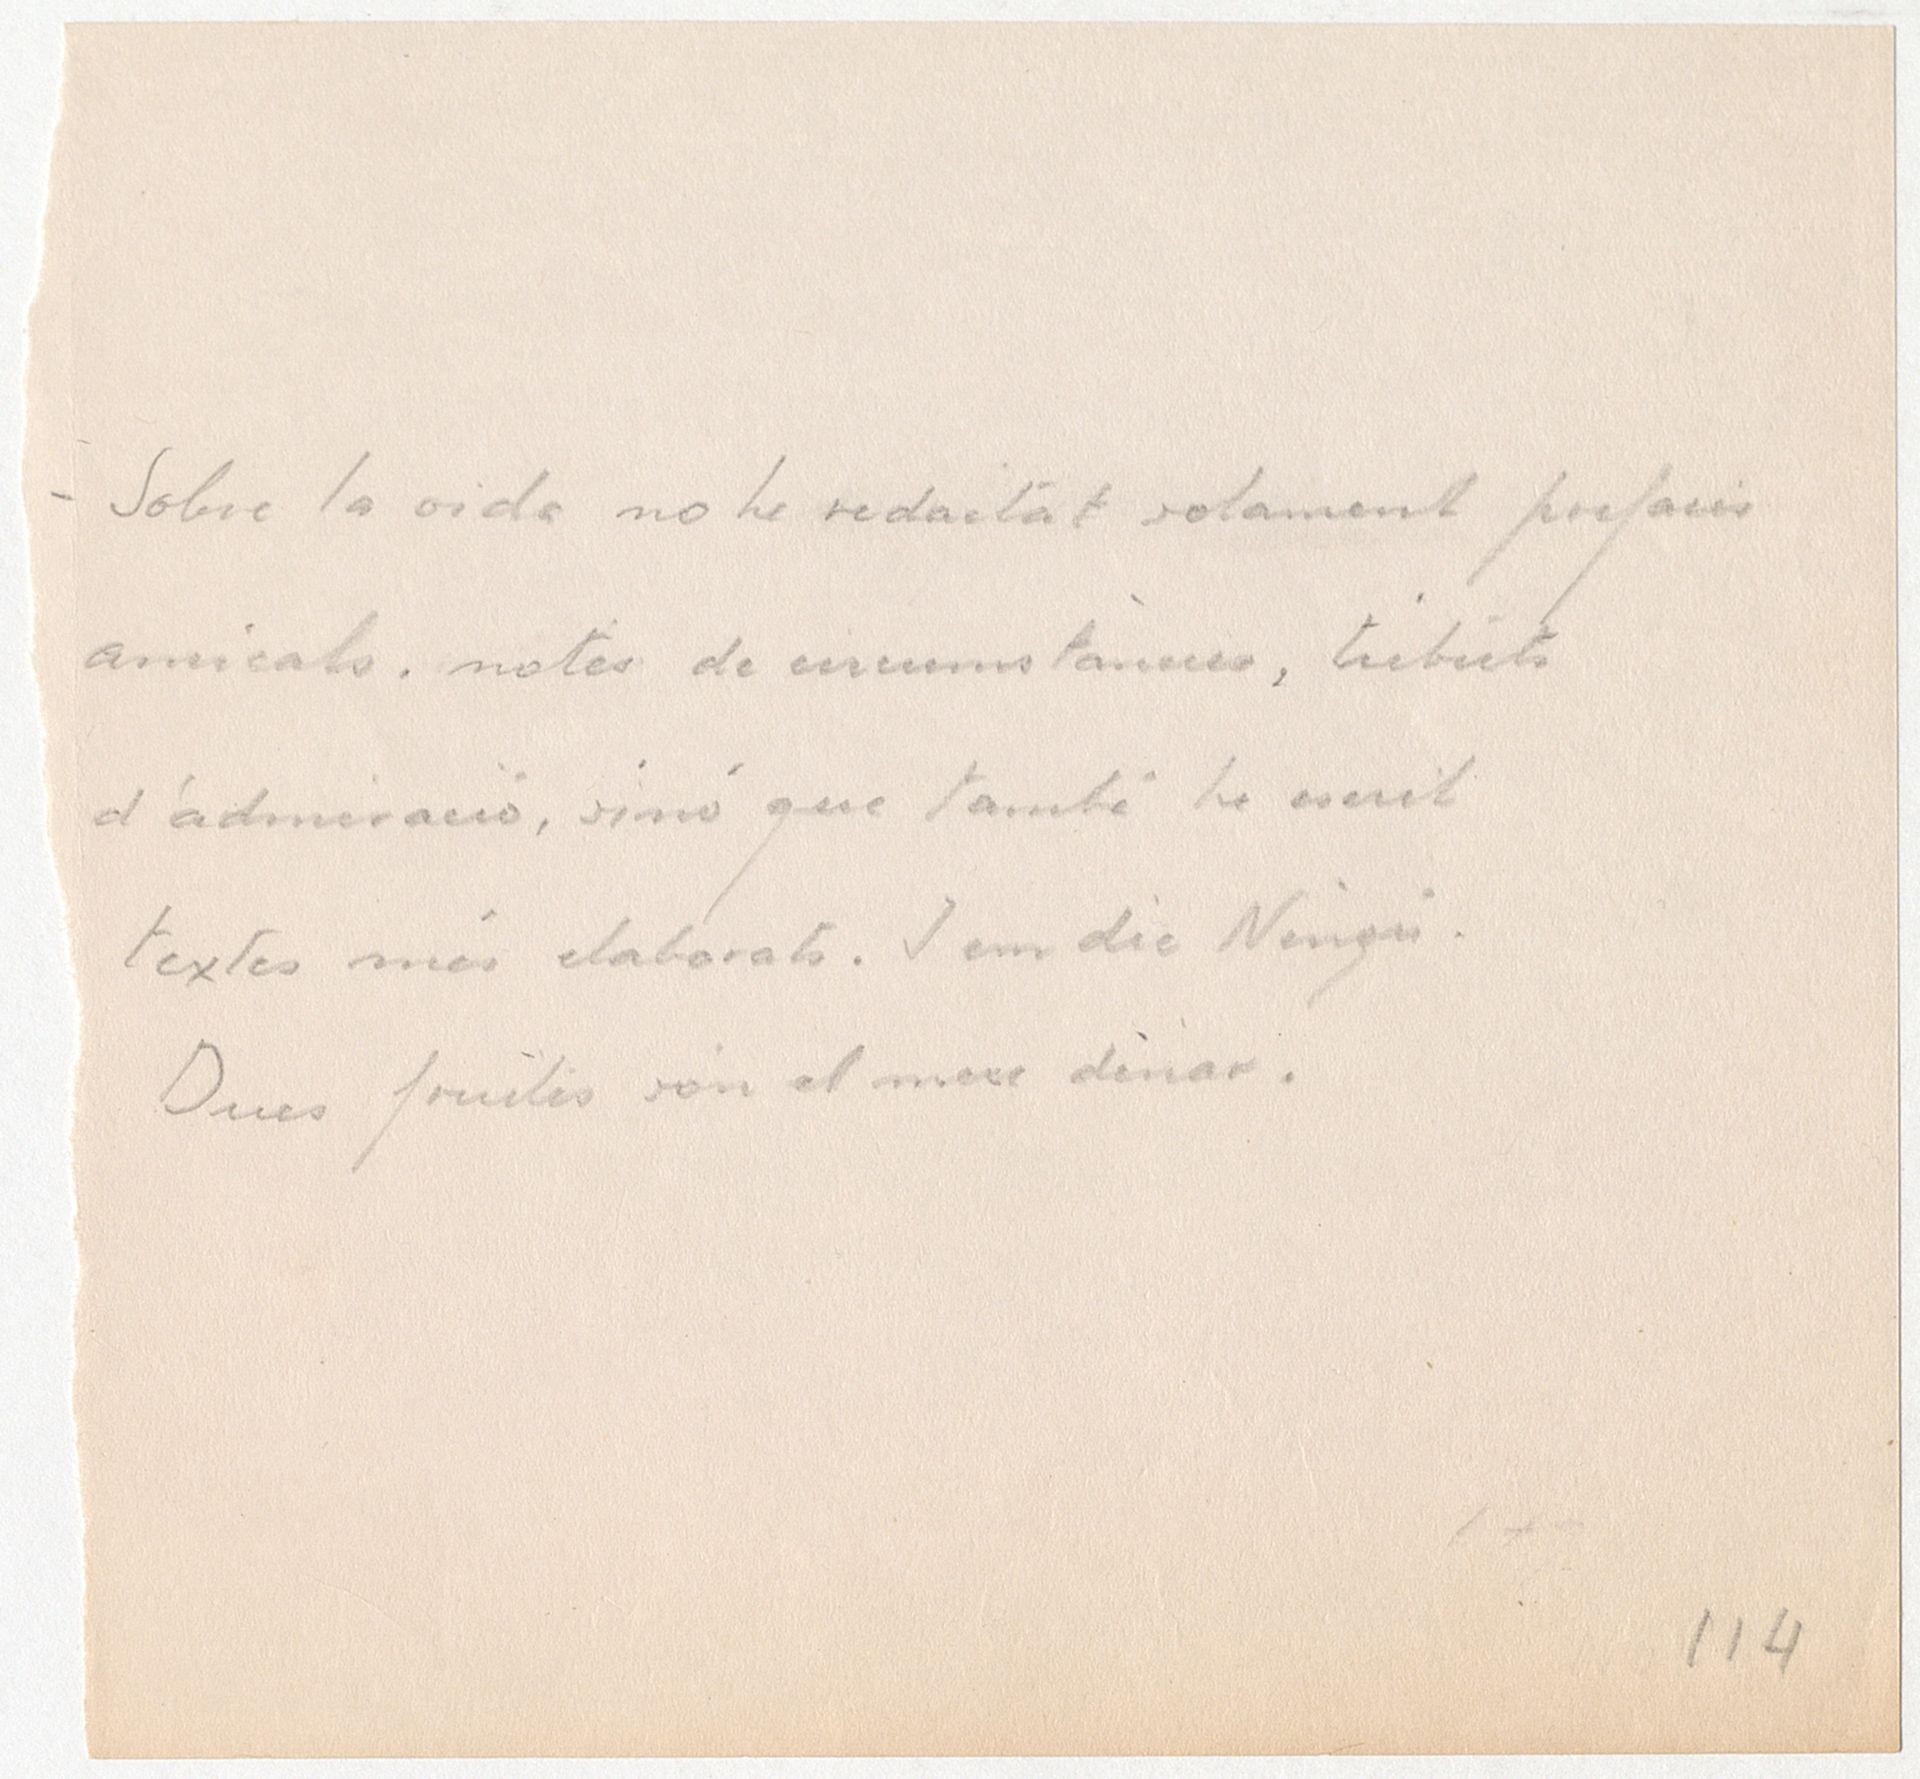 - Sobre la vida no he redactat solament prefacis
amicals. notes de circumstàncies, tributs
d'admiració, sinó que també he escrit
textes més elaborats. I em dic Ningú.
Dues fruites són el meu dinar.
114